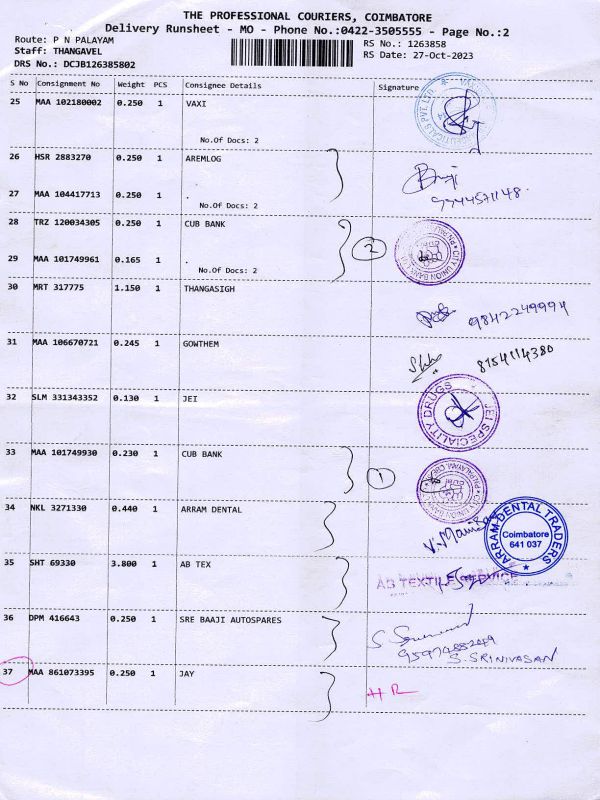 THE PROFESSIONAL COURIERS, COIMBATORE
Delivery Runsheet - MO - Phone No.:0422-3505555 - Page No.:2
Route: P N PALAYAM
RS No.: 1263858
Staff: THANGAVEL
RS Date: 27-Oct-2023
DRS No.: DCJB126385802
S No Consignment No Weight PCS Consignee Details Signature
25 MAA 102180002 0.250 1 VAXI
No.Of Docs: 2
26 HSR 2883270 0.250 1 AREMLOG
27 MAA 104417713 0.250 1 .
No.Of Docs: 2
28 TRZ 120034305 0.250 1 CUB BANK
2
29 MAA 101749961 0.165 1 .
No.Of Docs: 2
CITY UNION BANK LTD
30 MRT 317775 1.150 1 THANGASIGH
9842249994
31 MAA 106670721 0.245 1 GOWTHEM
8154114380
32 SLM 331343352 0.130 1 JEI
JEI SPECIALITY DRUGS
33 MAA 101749930 0.230 1 CUB BANK
1
34 NKL 3271330 0.440 1 ARRAM DENTAL
ARRAM DENTAL TRADERS
Coimbatore
641 037
35 SHT 69330 3.800 1 AB TEX
36 DPM 416643 0.250 1 SRE BAAJI AUTOSPARES
S. SRINIVASAN
37 MAA 861073395 0.250 1 JAY
HR